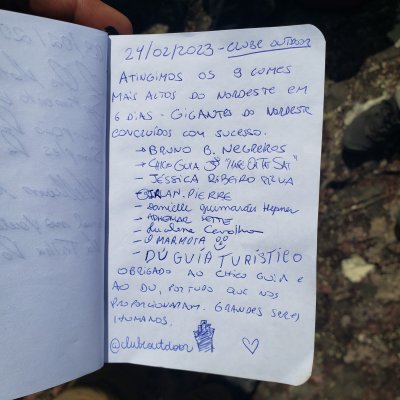 24/02/2023 - CLUBE OUTDOOR
ATINGIMOS OS 9 CUMES
MAIS ALTOS DO NORDESTE EM
6 DIAS - GIGANTES DO NORDESTE
CONCLUÍDOS COM SUCESSO.
→ BRUNO B. NEGREIROS
→ CHICO GUIA
→ JÉSSICA RIBEIRO SILVA
JEAN.PIERRE
- Danielle Guimarães
- ADHEMAR
- Lucilene Carvalho
- O MARMOTA
- DÚ GUIA TURÍSTICO
OBRIGADO AO CHICO GUIA E
AO DU, POR TUDO QUE NOS
PROPORCIONARAM. GRANDES SERES
HUMANOS.
@clubeoutdoor